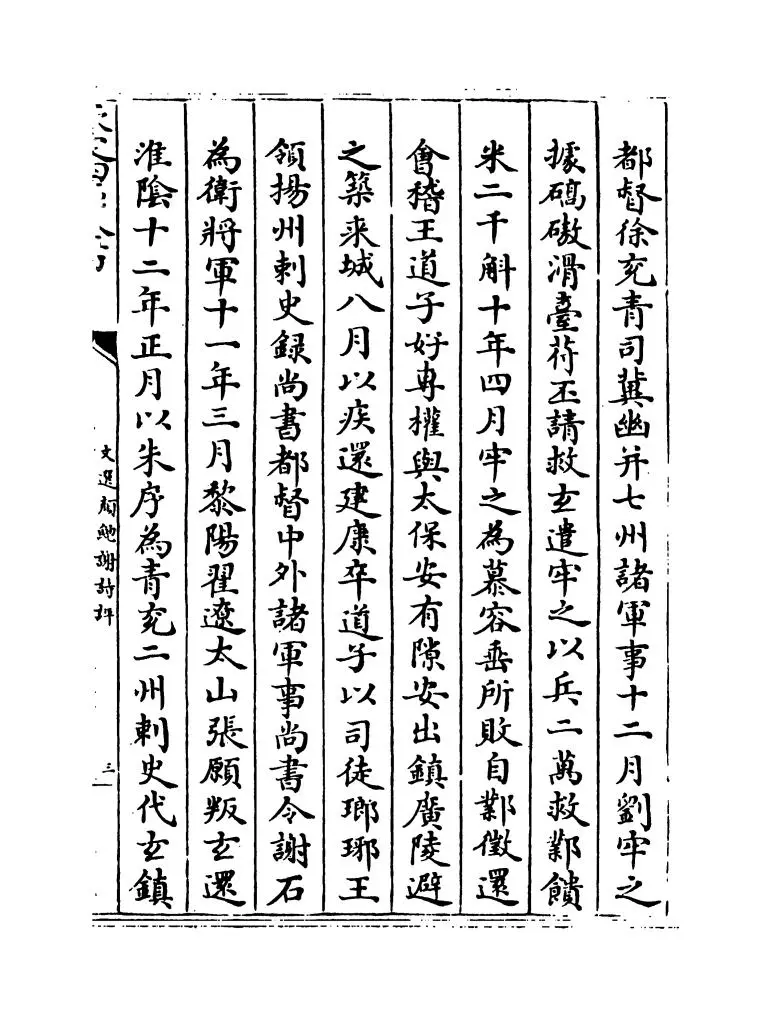 都督徐兖青司冀幽并七州諸軍事十二月劉牢之
據碻磝滑臺苻丕請救玄遣牢之以兵二萬救鄴饋
米二千斛十年四月牢之為慕容垂所敗自鄴徵還
會稽王道子好專權與太保安有隙安出鎮廣陵避
之築来城八月以疾還建康卒道子以司徒瑯琊王
領揚州刺史録尚書都督中外諸軍事尚書令謝石
為衛將軍十一年三月黎陽翟遼太山張願叛玄還
淮陰十二年正月以朱序為青兖二州刺史代玄鎮
文選顔鮑謝詩評
三